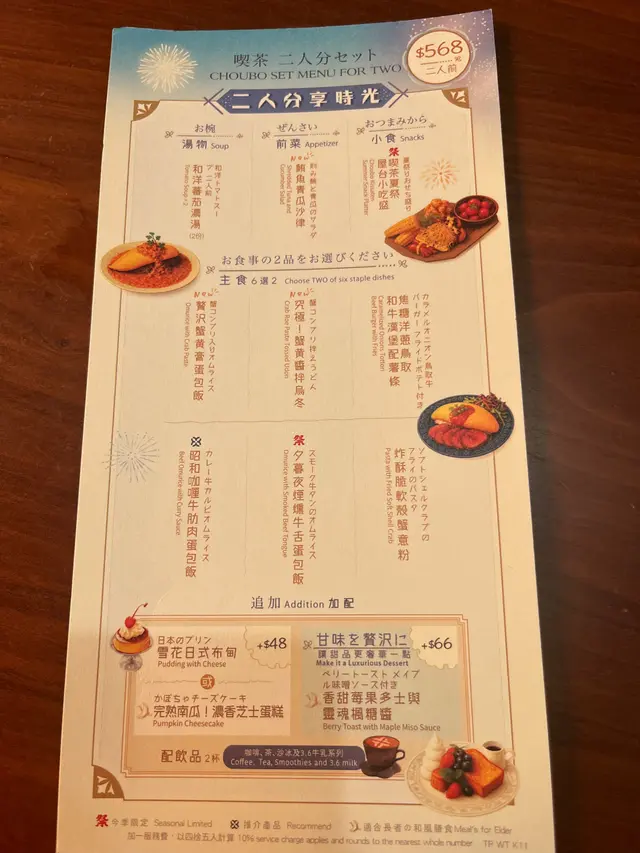 喫茶 二人分セット
CHOUBO SET MENU FOR TWO
$568
元
二人前
二人分享時光
お椀
湯物 Soup
ぜんさい
前菜 Appetizer
おつまみから
小食 Snacks
和洋トマトスープ 二人前
和洋蕃茄濃湯 (2份)
Tomato Soup x 2
New
刻み鮪と青瓜のサラダ
鮪魚青瓜沙律
Shredded Tuna and Cucumber Salad
夏祭りおせち盛り
祭 喫茶夏祭屋台小吃盛
Choubo Kissaten Summer Snack Platter
お食事の2品をお選びください
主食 6選2 Choose TWO of six staple dishes
New
蟹コンブリ入りオムライス
贅沢蟹黄膏蛋包飯
Omurice with Crab Paste
New
蟹コンブリ拌えうどん
究極!蟹黄醬拌烏冬
Crab Roe Paste Tossed Udon
カラメルオニオン鳥取牛バーガーフライドポテト付き
焦糖洋蔥鳥取和牛漢堡配薯條
Caramelized Onions Tottori Beef Burger with Fries
カレー牛カルビオムライス
昭和咖喱牛肋肉蛋包飯
Beef Omurice with Curry Sauce
スモーク牛タンのオムライス
祭 夕暮夜煙燻牛舌蛋包飯
Omurice with Smoked Beef Tongue
ソフトシェルクラブのフライのパスタ
炸酥脆軟殼蟹意粉
Pasta with Fried Soft Shell Crab
追加 Addition 加配
日本のプリン
雪花日式布甸
Pudding with Cheese
+$48
或
かぼちゃチーズケーキ
完熟南瓜!濃香芝士蛋糕
Pumpkin Cheesecake
甘味を贅沢に
+$66
讓甜品更奢華一點
Make it a Luxurious Dessert
ベリートースト メイプル味噌ソース付き
香甜莓果多士與
靈魂楓糖醬
Berry Toast with Maple Miso Sauce
配飲品 2杯
咖啡、茶、沙冰及3.6牛乳系列
Coffee, Tea, Smoothies and 3.6 milk
祭 今季限定 Seasonal Limited
推介產品 Recommend
適合長者の和風膳食 Meal's for Elder
加一服務費，以四捨五入計算 10% service charge applies and rounds to the nearest whole number
TP WT K11